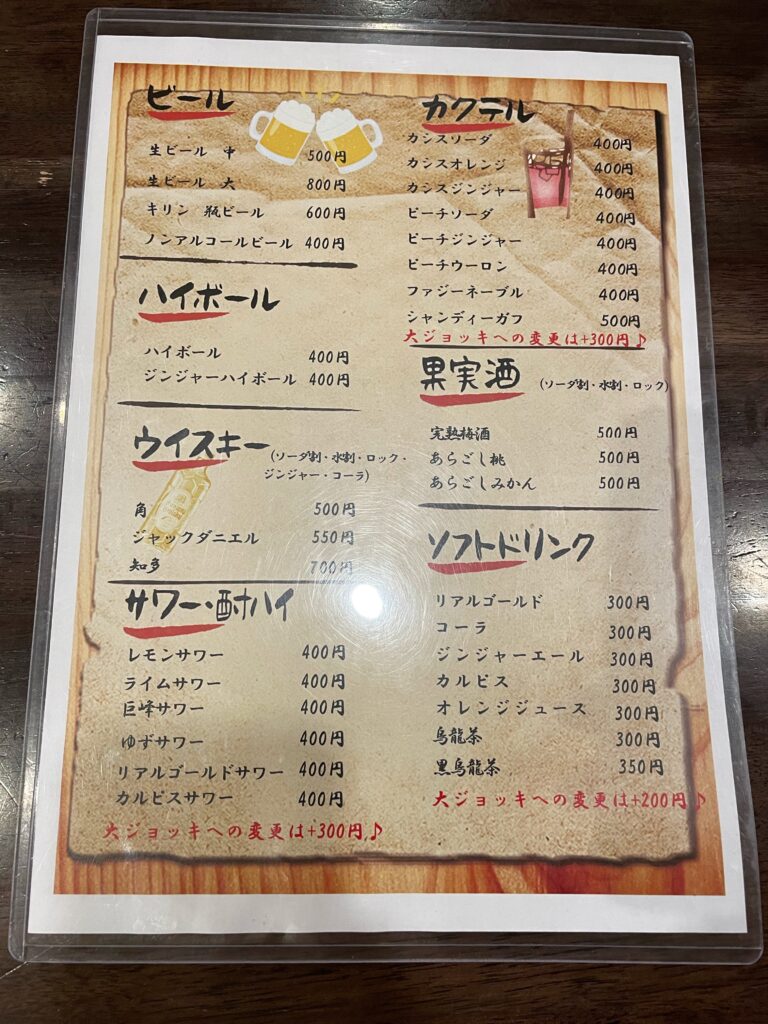 ビール
生ビール 中 500円
生ビール 大 800円
キリン 瓶ビール 600円
ノンアルコールビール 400円
ハイボール
ハイボール 400円
ジンジャーハイボール 400円
ウイスキー (ソーダ割・水割・ロック・
ジンジャー・コーラ)
角 500円
ジャックダニエル 550円
知多 700円
サワー・酎ハイ
レモンサワー 400円
ライムサワー 400円
巨峰サワー 400円
ゆずサワー 400円
リアルゴールドサワー 400円
カルピスサワー 400円
大ジョッキへの変更は+300円♪
カクテル
カシスソーダ 400円
カシスオレンジ 400円
カシスジンジャー 400円
ピーチソーダ 400円
ピーチジンジャー 400円
ピーチウーロン 400円
ファジーネーブル 400円
シャンディーガフ 500円
大ジョッキへの変更は+300円♪
果実酒 (ソーダ割・水割・ロック)
完熟梅酒 500円
あらごし桃 500円
あらごしみかん 500円
ソフトドリンク
リアルゴールド 300円
コーラ 300円
ジンジャーエール 300円
カルピス 300円
オレンジジュース 300円
烏龍茶 300円
黒烏龍茶 350円
大ジョッキへの変更は+200円♪